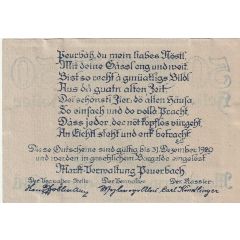 Peurbåh, du mein liabes Nöstl
Mit deine Gässl eng und weit.
Bist so recht a gmüatligs Bildl
Aus da guatn alten Zeit.
Der schönsti Zier, do alten Häusa,
So einfach und do volla Pracht,
Dass jeder, der nöt kopflos vürgeht,
An Eichtl steht und enk betracht.
Diese Gutscheine sind gültig bis 31. Dezember 1920
und werden in gesetzlichem Bargelde eingelöst
Markt-Verwaltung Peuerbach:
Der Verwalter-Stellv. Der Verwalter Der Kassier